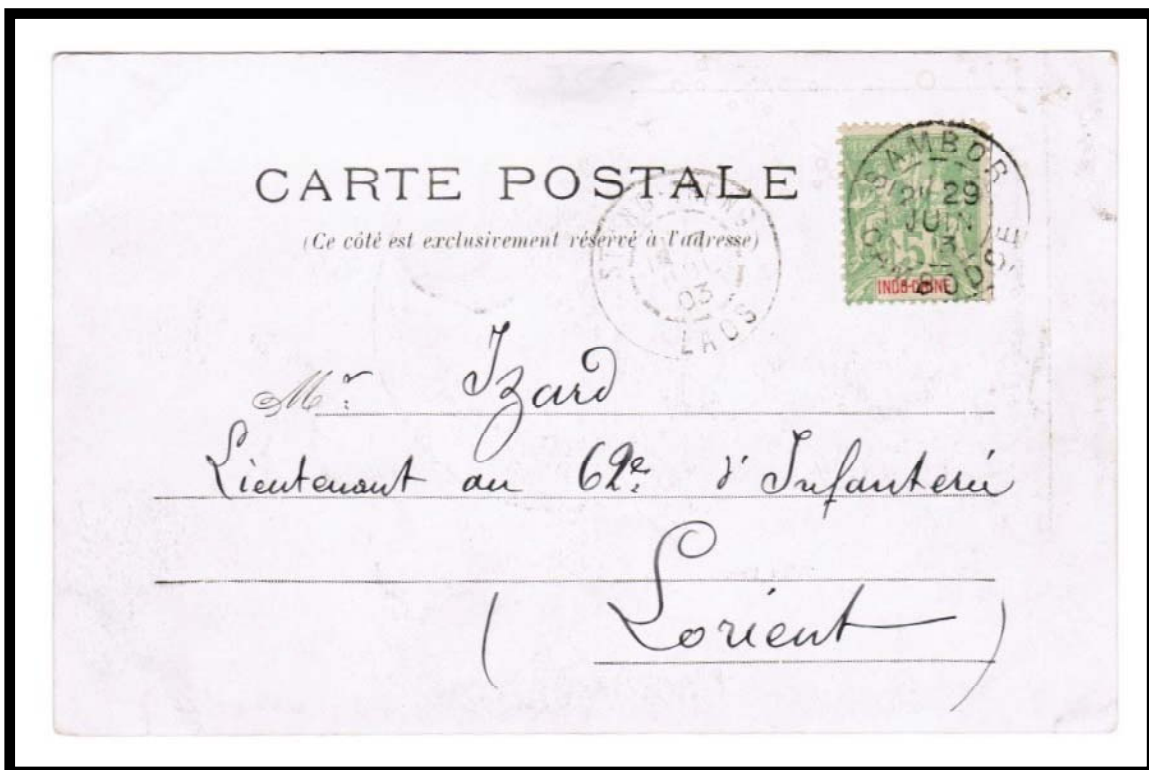 CARTE POSTALE
(Ce côté est exclusivement réservé à l'adresse)
SAMBOR
29
JUIN
CAMBODGE
5
INDO-CHINE
STUNG-TRENG
03
LAOS
Mr. Izard
Lieutenant au 62e. d'Infanterie
( Lorient )